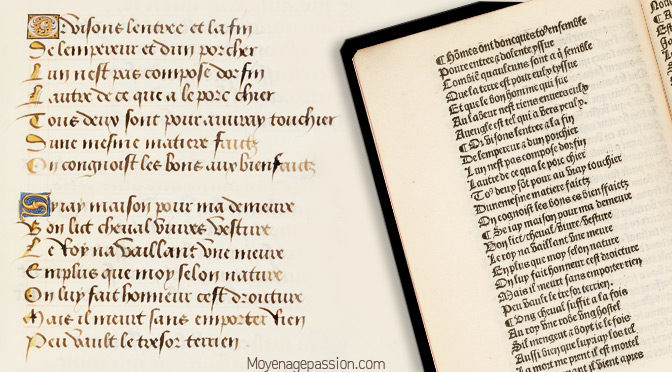 Or visons lentree et la fin
De lempereur et dun porcher
Lun nest pas compose dor fin
Lautre de ce que a le porc chier
Tous deux sont pour au vray touchier
Dune mesme matiere faictz
On congnoist les bons aux bienfaictz
Se iay maison pour ma demeure
Bon lict cheval vivres vesture
Le Roy na vaillant une meure
Emplus que moy selon nature
On luy fait honneur cest droicture
Mais il meurt sans emporter rien
Peu vault le tresor terrien
Moyenagepassion.com
Hômes ont doncques to9 ensemble
Povre entree & dolente yssue
Combiē quaulcuns sont a q̄ semble
Que la terre est povre
Et que le bon homme qui sue
Au labeur nest riens envers eulx
Aveugle est tel qui a vers yeulx.
Or visons lentree a la fin
De lempereur & dun porchier
Lun nest pas compose dor fin
Lautre de ce que le porc chier
To9 deux sōt pour au vray touchier
Dune mesme matiere faictz
On cognoist les bons es biēffaictz
Se iay maison pour ma demeure
Bon lict/cheval/vivre/vesture
Le roy na vaillant une meure
En plus que moy selon nature
On luy fait honneur cest droicture
Mais il meurt sans emporter rien
Peu vault le tresor terrien.
Ung cheval suffit a la fois
Au roy une robe ung hostel
Sil mengent & boyt ie le fois
Aussi bien que luy/iay los tel
La mort me prent il est mortel